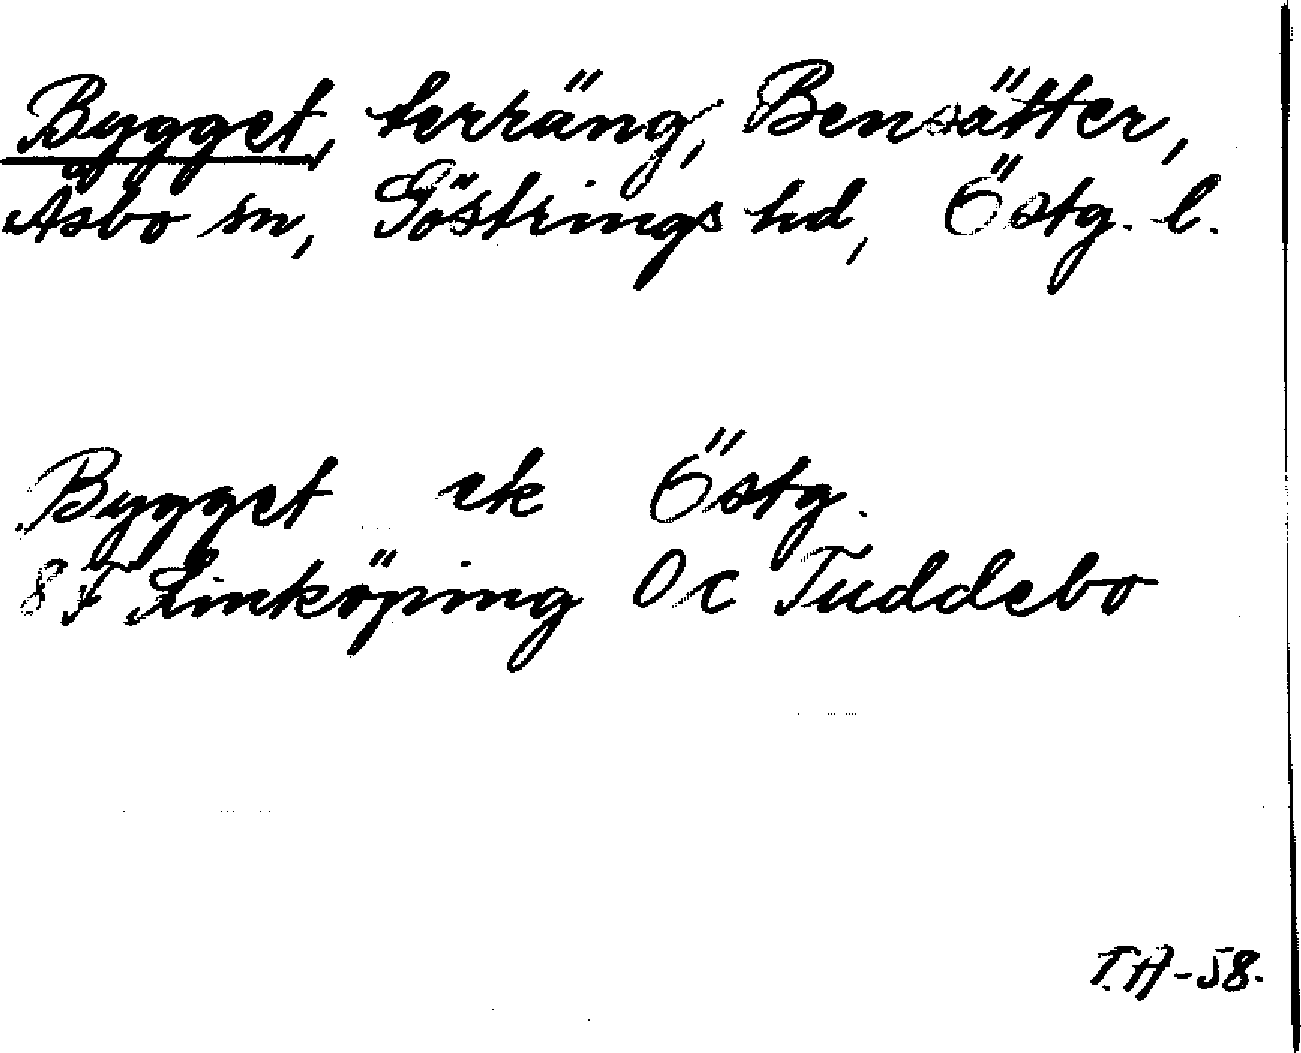 Bygget, terräng, Bensätter,
Åsbo sn, Göstrings hd, Östg. l.
Bygget ek Östg.
8 F Linköping 0 c Tuddebo
T.A-58.